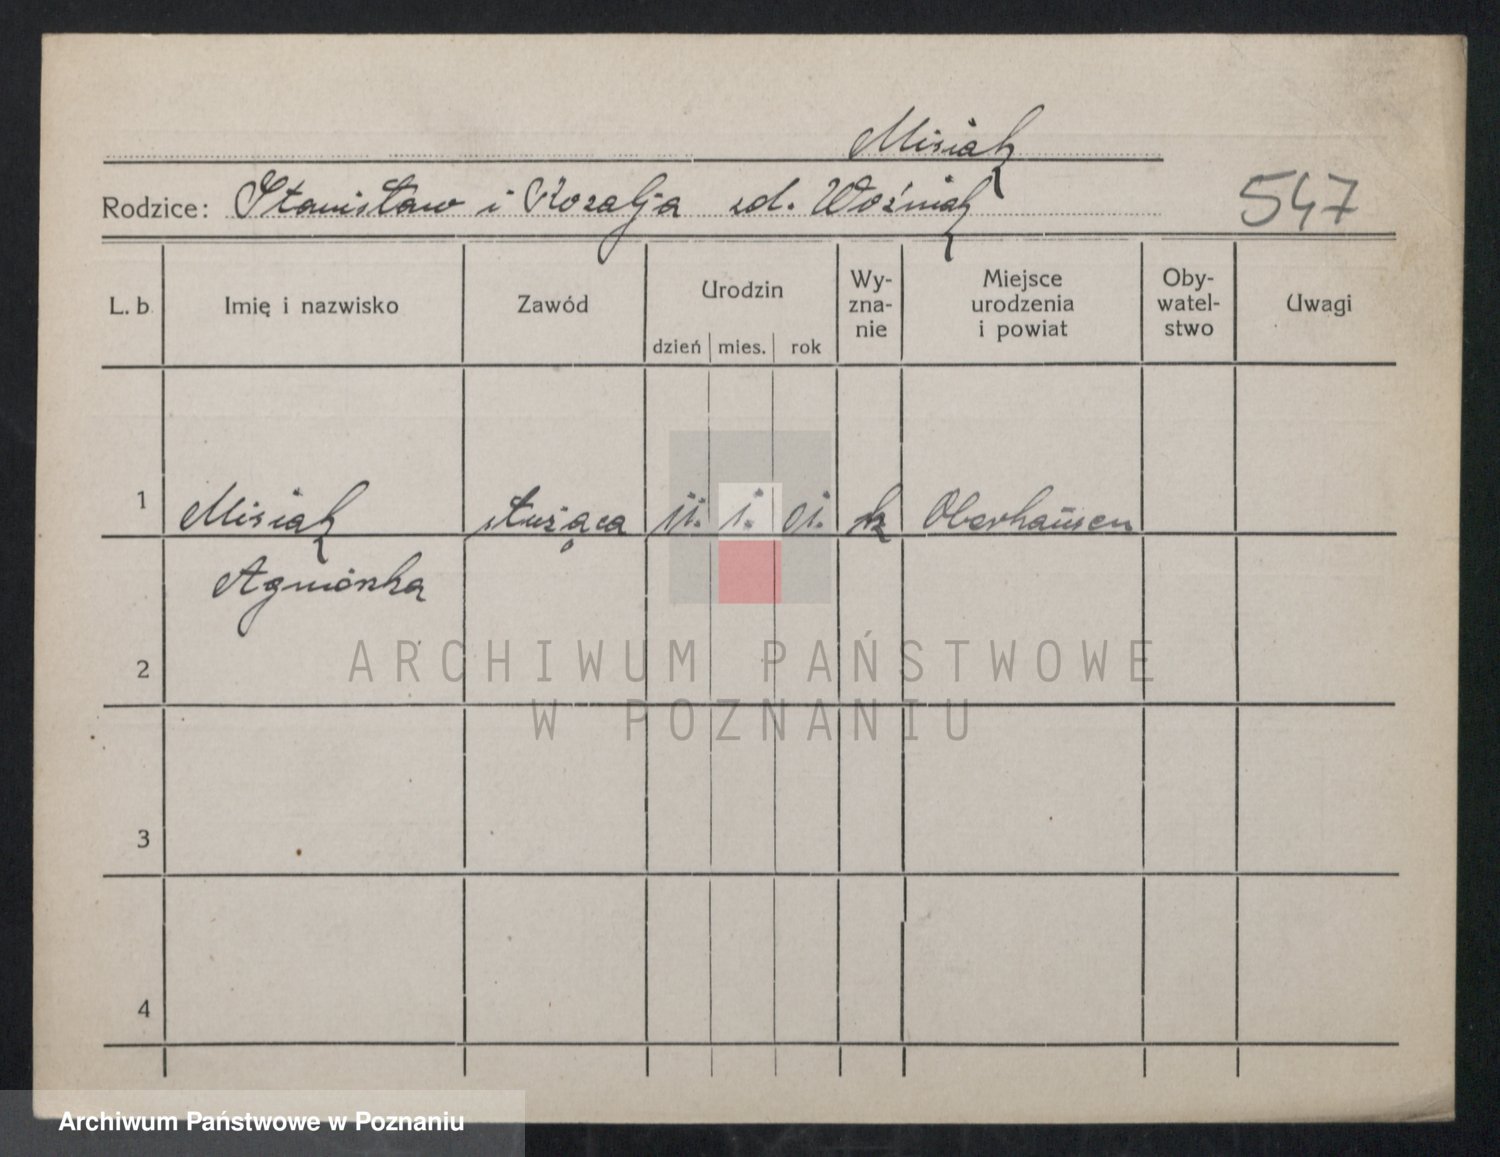 Misiak
Rodzice: Stanisław i Rozalja zd. Woźniak
547
L. b. Imię i nazwisko Zawód Urodzin dzień mies. rok Wy-zna-nie Miejsce urodzenia i powiat Oby-watel-stwo Uwagi
1 Misiak służąca 11. 1. 01. k Oberhausen
Agnieszka
2
ARCHIWUM PAŃSTWOWE
W POZNANIU
3
4
Archiwum Państwowe w Poznaniu